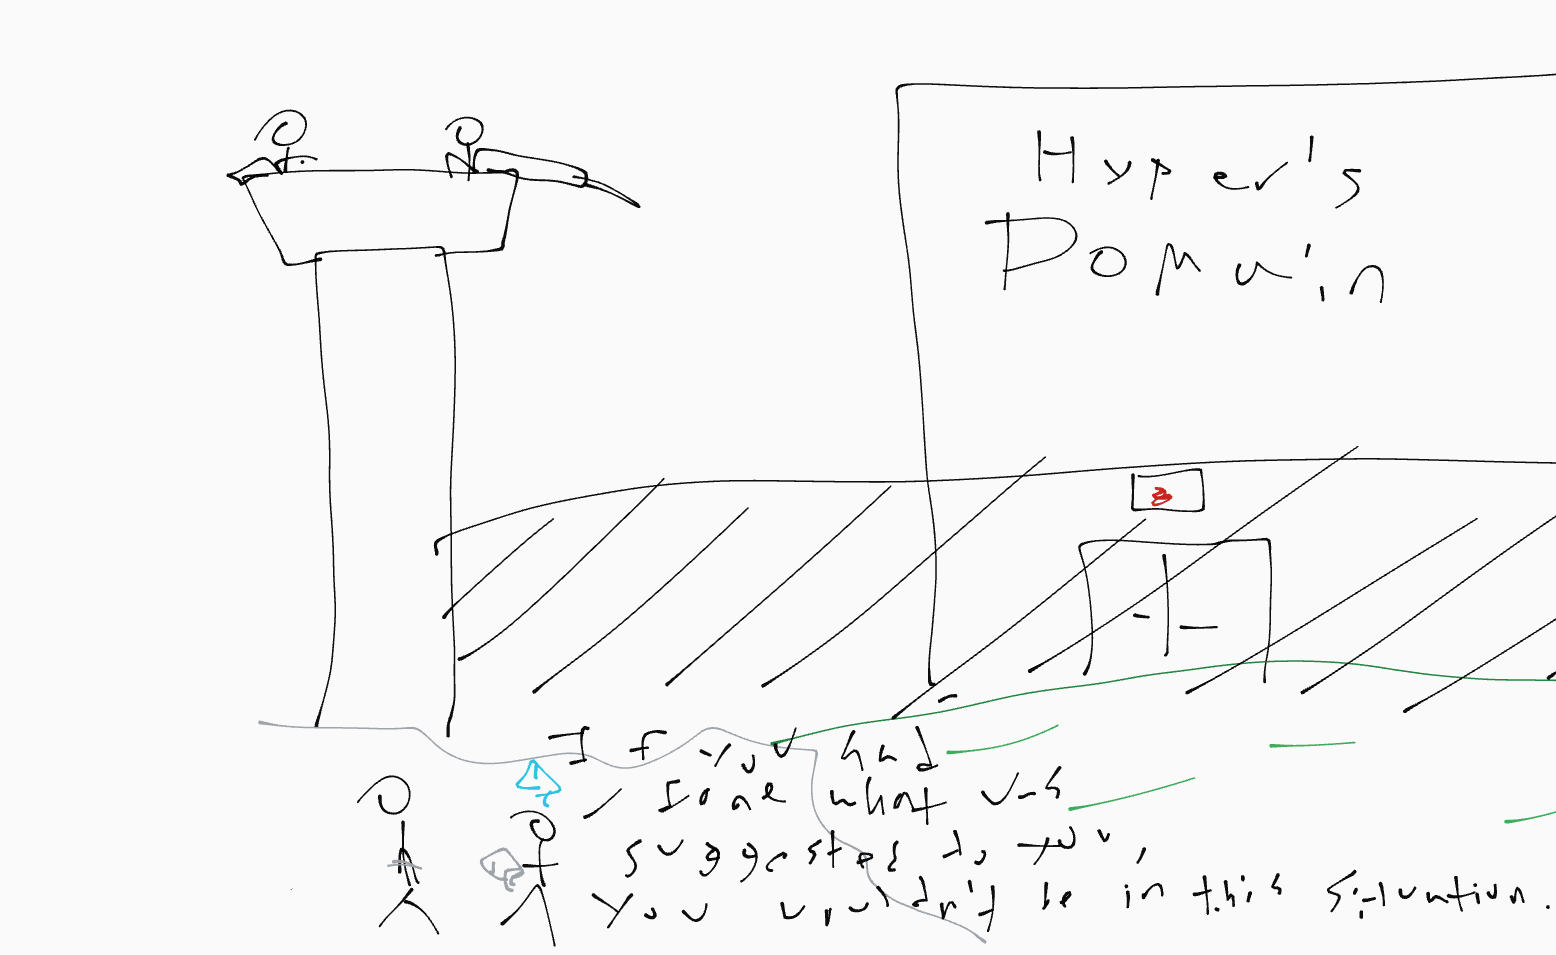 Hyper's
Domain
If you had
done what was
suggested to you,
you wouldn't be in this situation.